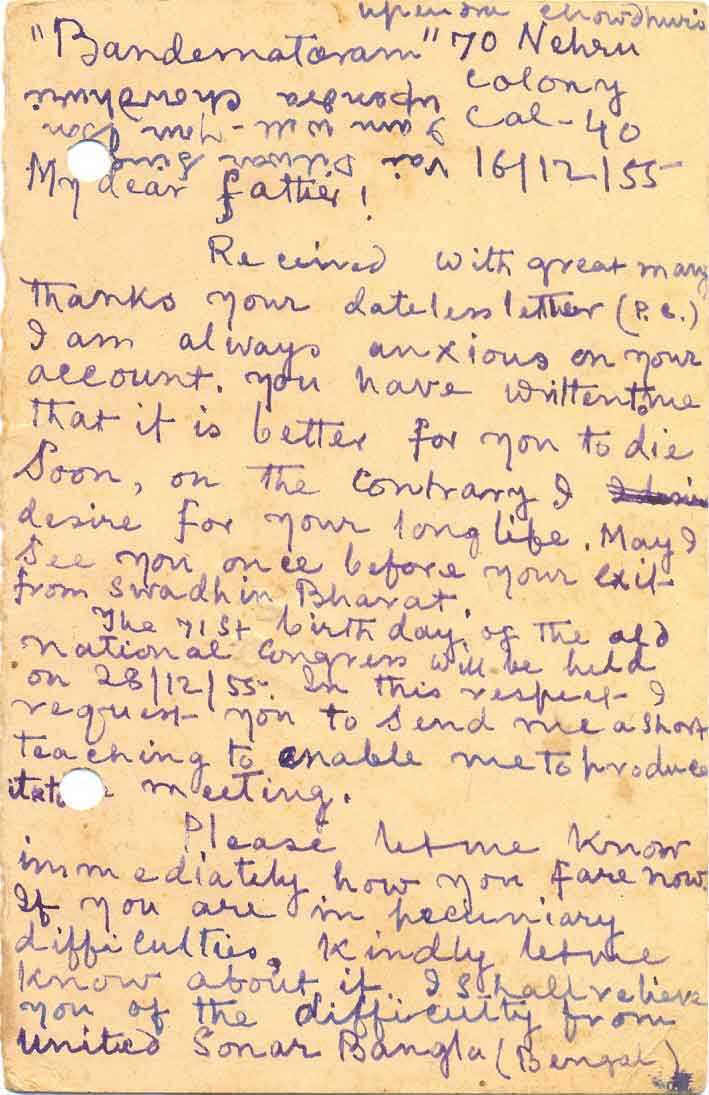 Upendra Chowdhuris
"Bandemataram" 70 Nehru
Colony
Cal-40
16/12/55
My dear father!
Received with great many
thanks your dateless letter (P.C.)
I am always anxious on your
account. you have written to me
that it is better for you to die
soon, on the contrary I I desire
desire for your long life. May I
see you once before your exit
from Swadhin Bharat.
The 71st birthday of the old
national Congress will be held
on 28/12/55. In this respect I
request you to send me a short
teaching to enable me to produce
it at meeting.
Please let me know
immediately how you fare now.
If you are in pecuniary
difficulties, kindly let me
know about it I shall relieve
you of the difficulty from
united Sonar Bangla (Bengal)
vai Dilwan Singh
I am well - Your Son
Upendra Chowdhuri